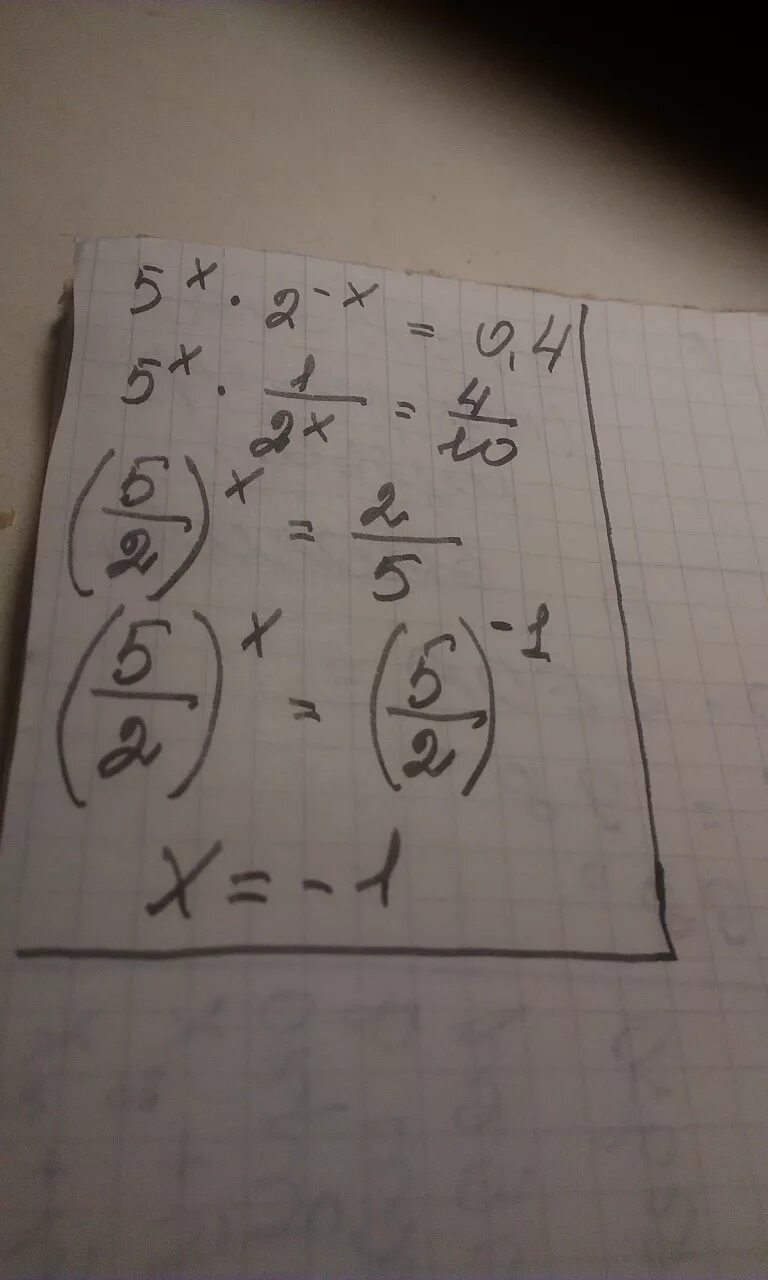 5^x · 2^-x = 0,4
5^x · 1/2^x = 4/10
(5/2)^x = 2/5
(5/2)^x = (5/2)^-1
x = -1